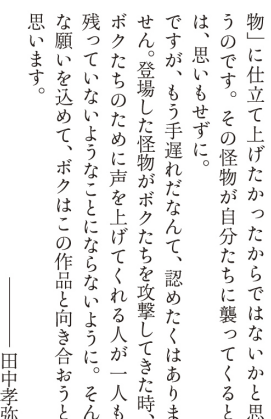 物」に仕立て上げたかったからではないかと思
うのです。その怪物が自分たちに襲ってくると
は、思いもせずに。
ですが、もう手遅れだなんて、認めたくはありま
せん。登場した怪物がボクたちを攻撃してきた時、
ボクたちのために声を上げてくれる人が一人も
残っていないようなことにならないように。そん
な願いを込めて、ボクはこの作品と向き合おうと
思います。
――田中孝弥